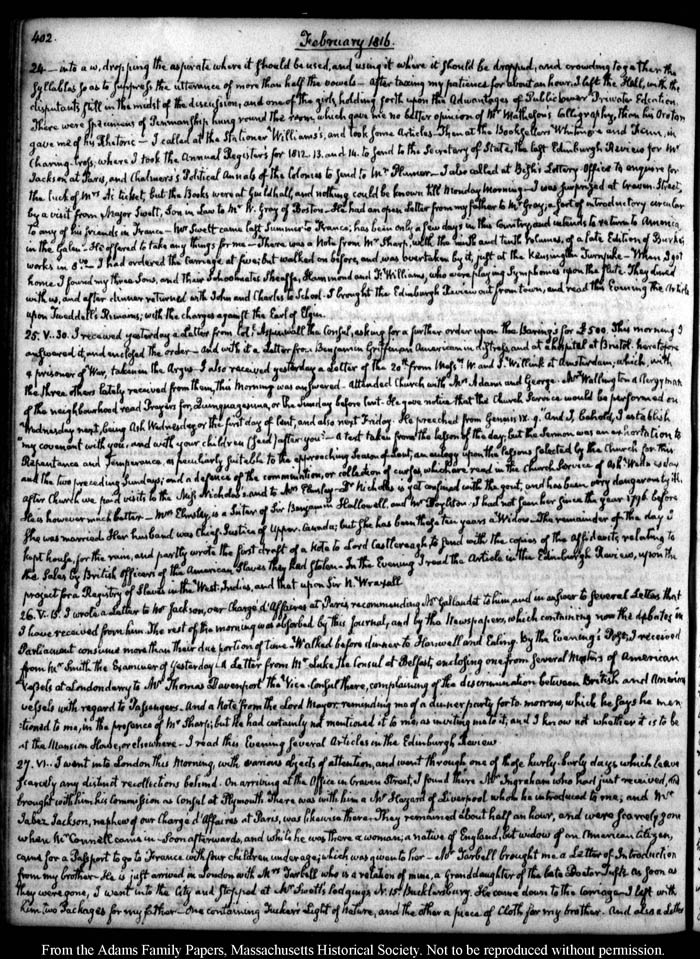 402.
February 1816.
24.— into a w, dropping the aspirate where it should be used, and using it where it should be dropped, and crowding together the
syllables so as to suppress the utterance of more than half the vowels— After taxing my patience for about an hour, I left the Hall, with the
disputants still in the midst of the discussion, and one of the girls holding forth upon the Advantages of Public over Private Education.
There were specimens of Penmanship hung round the room, which gave me no better opinion of Mr Matheson's Calligraphy, than his Oration
gave me of his Rhetoric— I called at the Stationer Williams's, and took some Articles. Then at the Booksellers in
Charing-Cross, where I took the Annual Registers for 1812. 13. and 14. to send to the Secretary of State, the last Edinburgh Review for Mr
Jackson at Paris, and Chalmers's Political Annals of the Colonies to send to Mr Plumer— I also called at Bish's Lottery Office to enquire for
the luck of Mrs A's ticket, but the Books were at Guildhall, and nothing could be known till Monday Morning— I was surprized at Craven Street,
by a visit from Major Swett, Son in Law to Mr W. Gray of Boston— He had an open Letter from my father to Mr Gray; a sort of introductory circular
to any of his friends in France— Mr Swett came last Summer to France; has been only a few days in this Country, and intends to return to America
in the Galen. He offered to take any things for me— There was a Note from Mr Sharp, with the ninth and tenth volumes, of a late Edition of Burke's
works in 8vo— I had ordered the Carriage at five; but walked on before, and was overtaken by it, just at the Kensington Turnpike— When I got
home I found my three Sons, and their Schoolmates Sheaffe, Hammond and F. Williams, who were playing Symphonies upon the flute. They dined
with us, and after dinner returned with John and Charles to School. I brought the Edinburgh Review out from town, and read this Evening the Article
upon Tweddell's Remains, with the charges against the Earl of Elgin.
25. V..30. I received yesterday a Letter from Col. Aspinwall the Consul, asking for a further order upon the Barings for £500. This morning I
answered it, and enclosed the order— And with it a Letter from Benjamin Griffin an American in distress, and at a hospital at Bristol. heretofore
a prisoner of War, taken in the Argus. I also received yesterday a Letter of the 20th from Messrs W. and J. Willink at Amsterdam; which, with
the three others lately received from them, this Morning was answered— Attended Church with Mrs Adams and George. Mr Wallington a Clergyman
of the neighbourhood read Prayers for Quinquagesima, or the Sunday before Lent. He gave notice that the Church Service would be performed on
Wednesday next, being Ash Wednesday, or the first day of Lent, and also next Friday. He preached from Genesis IX. 9. "And I, behold, I establish
"my covenant with you, and with your children (Seed) after you"— A text taken from the lesson of the day, but the Sermon was an exhortation to
Repentance and Temperance, as peculiarly suitable to the approaching Season of Lent; an eulogy upon the lessons selected by the Church for this
and the two preceding Sundays; and a defence of the commination, or collection of curses, which are read in the Church Service of Ash Wednesday
After Church we paid visits to the Miss Nicholas's and to Mrs Elmsley— Dr Nicholas is yet confined with the gout, and has been very dangerously ill.
He is however much better— Mrs Elmsley, is a Sister of Sir Benjamin Hallowell, and Mr Boylston. I had not seen her since the year 1796 before
she was married. Her husband was Chief Justice of Upper Canada; but she has been these ten years a Widow— The remainder of the day I
kept house, for the rain, and partly wrote the first draft of a Note to Lord Castlereagh to send with the copies of the Affidavits relating to
the Sales by British Officers of the American Slaves they had stolen. In the Evening I read the Article in the Edinburgh Review, upon the
project for a Registry of Slaves in the West-Indies, and that upon Sir N. Wraxall.
26. V..15. I wrote a Letter to Mr Jackson, our Chargé d'Affaires at Paris, recommending Mr Gallaudet to him, and in answer to several Letters that
I have received from him. The rest of the morning was absorbed by this Journal, and by the Newspapers, which containing now the debates in
Parliament consume more than their due portion of time— Walked before dinner to Hanwell and Ealing. By the Evening's Post, I received
from Mr Smith the Examiner of yesterday— A Letter from Mr Luke, the Consul at Belfast, enclosing one from several Masters of American
Vessels at Londonderry to Mr Thomas Davenport the Vice-Consul there, complaining of the discrimination between British and American
vessels with regard to Passengers. And a Note from the Lord Mayor reminding me of a dinner party for to-morrow, which he says he men-
-tioned to me, in the presence of Mr Sharp; but he had certainly not mentioned it to me, as inviting me to it, and I know not whether it is to be
at the Mansion House, or elsewhere— I read this Evening several Articles in the Edinburgh Review
27. VI.. I went into London this Morning, with various objects of attention, and went through one of those hurly-burly days, which leave
scarcely any distinct recollections behind. On arriving at the Office in Craven Street, I found there Mr Ingraham who had just received, and
brought with him his Commission as Consul at Plymouth. There was with him a Mr Hazard of Liverpool whom he introduced to me; and Mr
Jabez Jackson, nephew of our Chargé d'Affaires at Paris, was likewise there. They remained about half an hour, and were scarcely gone
when Mr Connell came in— Soon afterwards, and while he was there a woman; a native of England, but widow of an American Citizen,
came for a Passport to go to France with four children under age; which was given to her— Mr Tarbell brought me a Letter of Introduction
from my brother— He is just arrived in London with Mrs Tarbell who is a relation of mine, a granddaughter of the late Doctor Tufts. As soon as
they were gone, I went into the City and stopped at Mr Scott's lodgings N. 15. Bucklersbury. He came down to the carriage. I left with
him two Packages for my father— One containing Tucker's Light of Nature, and the other a piece of Cloth for my brother. And also a Letter
From the Adams Family Papers, Massachusetts Historical Society. Not to be reproduced without permission.